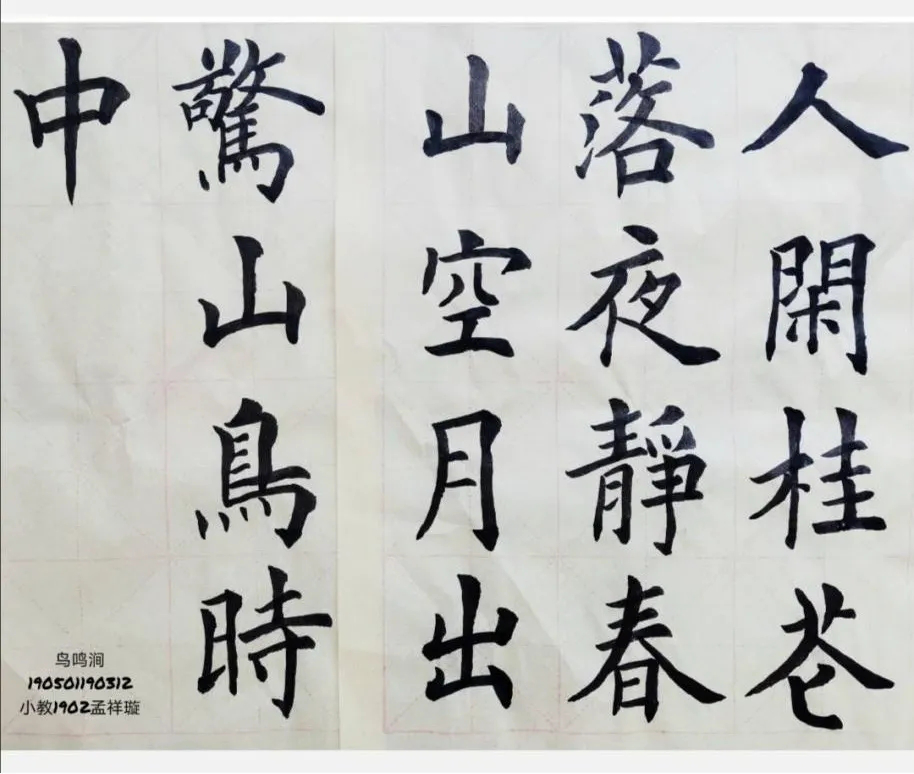 人閑桂花
落夜靜春
山空月出
驚山鳥時
中
鸟鸣涧
190501190312
小教1902孟祥璇